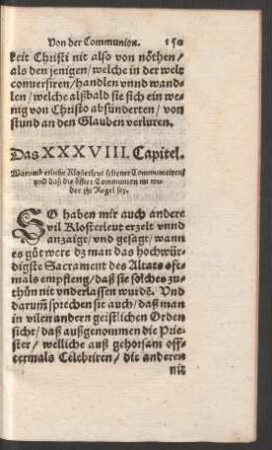 Von der Communion. 150
keit Christi nit also von nöthen/
als den jenigen/ welche in der welt
conuersiren/ handlen vnnd wand-
len/ welche alßbald sie sich ein we-
nig von Christo absünderten/ von
stund an den Glauben verluren.
Das XXXVIII. Capitel.
Warumb etliche Klosterleut seltener Communicirens
vnd daß die öffter Communion nit wi-
der jhr Regel sey.
SO haben mir auch andere
vil Klosterleut erzelt vnnd
anzaigt/ vnd gesagt/ wann
es gůt were dz man das hochwür-
digste Sacrament des Altars offt-
mals empfieng/ daß sie solches zu-
thůn nit vnderlassen wurdẽ. Vnd
darumb sprechen sie auch/ daß man
in vilen andern geistlichen Orden
sicht/ daß außgenommen die Prie-
ster/ welliche auß gehorsam off-
termals Celebriren/ die anderen
nit